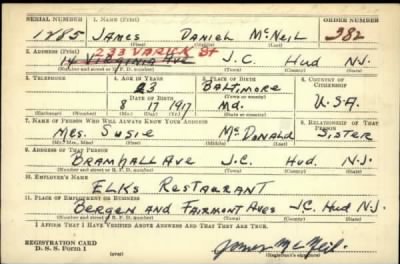 SERIAL NUMBER 1. NAME (Print) ORDER NUMBER
1285 JAMES DANIEL McNEIL 382
(First) (Middle) (Last)
233 VARICK St
2. ADDRESS (Print)
14 VIRGINIA AVE J.C. HUD N.J.
(Number and street or R. F. D. number) (Town) (County) (State)
3. TELEPHONE 4. AGE IN YEARS 5. PLACE OF BIRTH 6. COUNTRY OF CITIZENSHIP
23 BALTIMORE
(Town or county)
DATE OF BIRTH
8 17 1917 Md. U.S.A.
(Exchange) (No.) (Mo.) (Day) (Yr.) (State or country)
7. NAME OF PERSON WHO WILL ALWAYS KNOW YOUR ADDRESS 8. RELATIONSHIP OF THAT PERSON
MRS. SUSIE McDONALD SISTER
(Mr., Mrs., Miss) (First) (Middle) (Last)
9. ADDRESS OF THAT PERSON
BRAMHALL AVE J.C. HUD. N.J.
(Number and street or R. F. D. number) (Town) (County) (State)
10. EMPLOYER'S NAME
ELKS RESTAURANT
11. PLACE OF EMPLOYMENT OR BUSINESS
BERGEN AND FAIRMONT AVES J.C. HUD N.J.
(Number and street or R. F. D. number) (Town) (County) (State)
I AFFIRM THAT I HAVE VERIFIED ABOVE ANSWERS AND THAT THEY ARE TRUE.
REGISTRATION CARD
D. S. S. Form 1 (over) James McNeil.
(Registrant's signature)